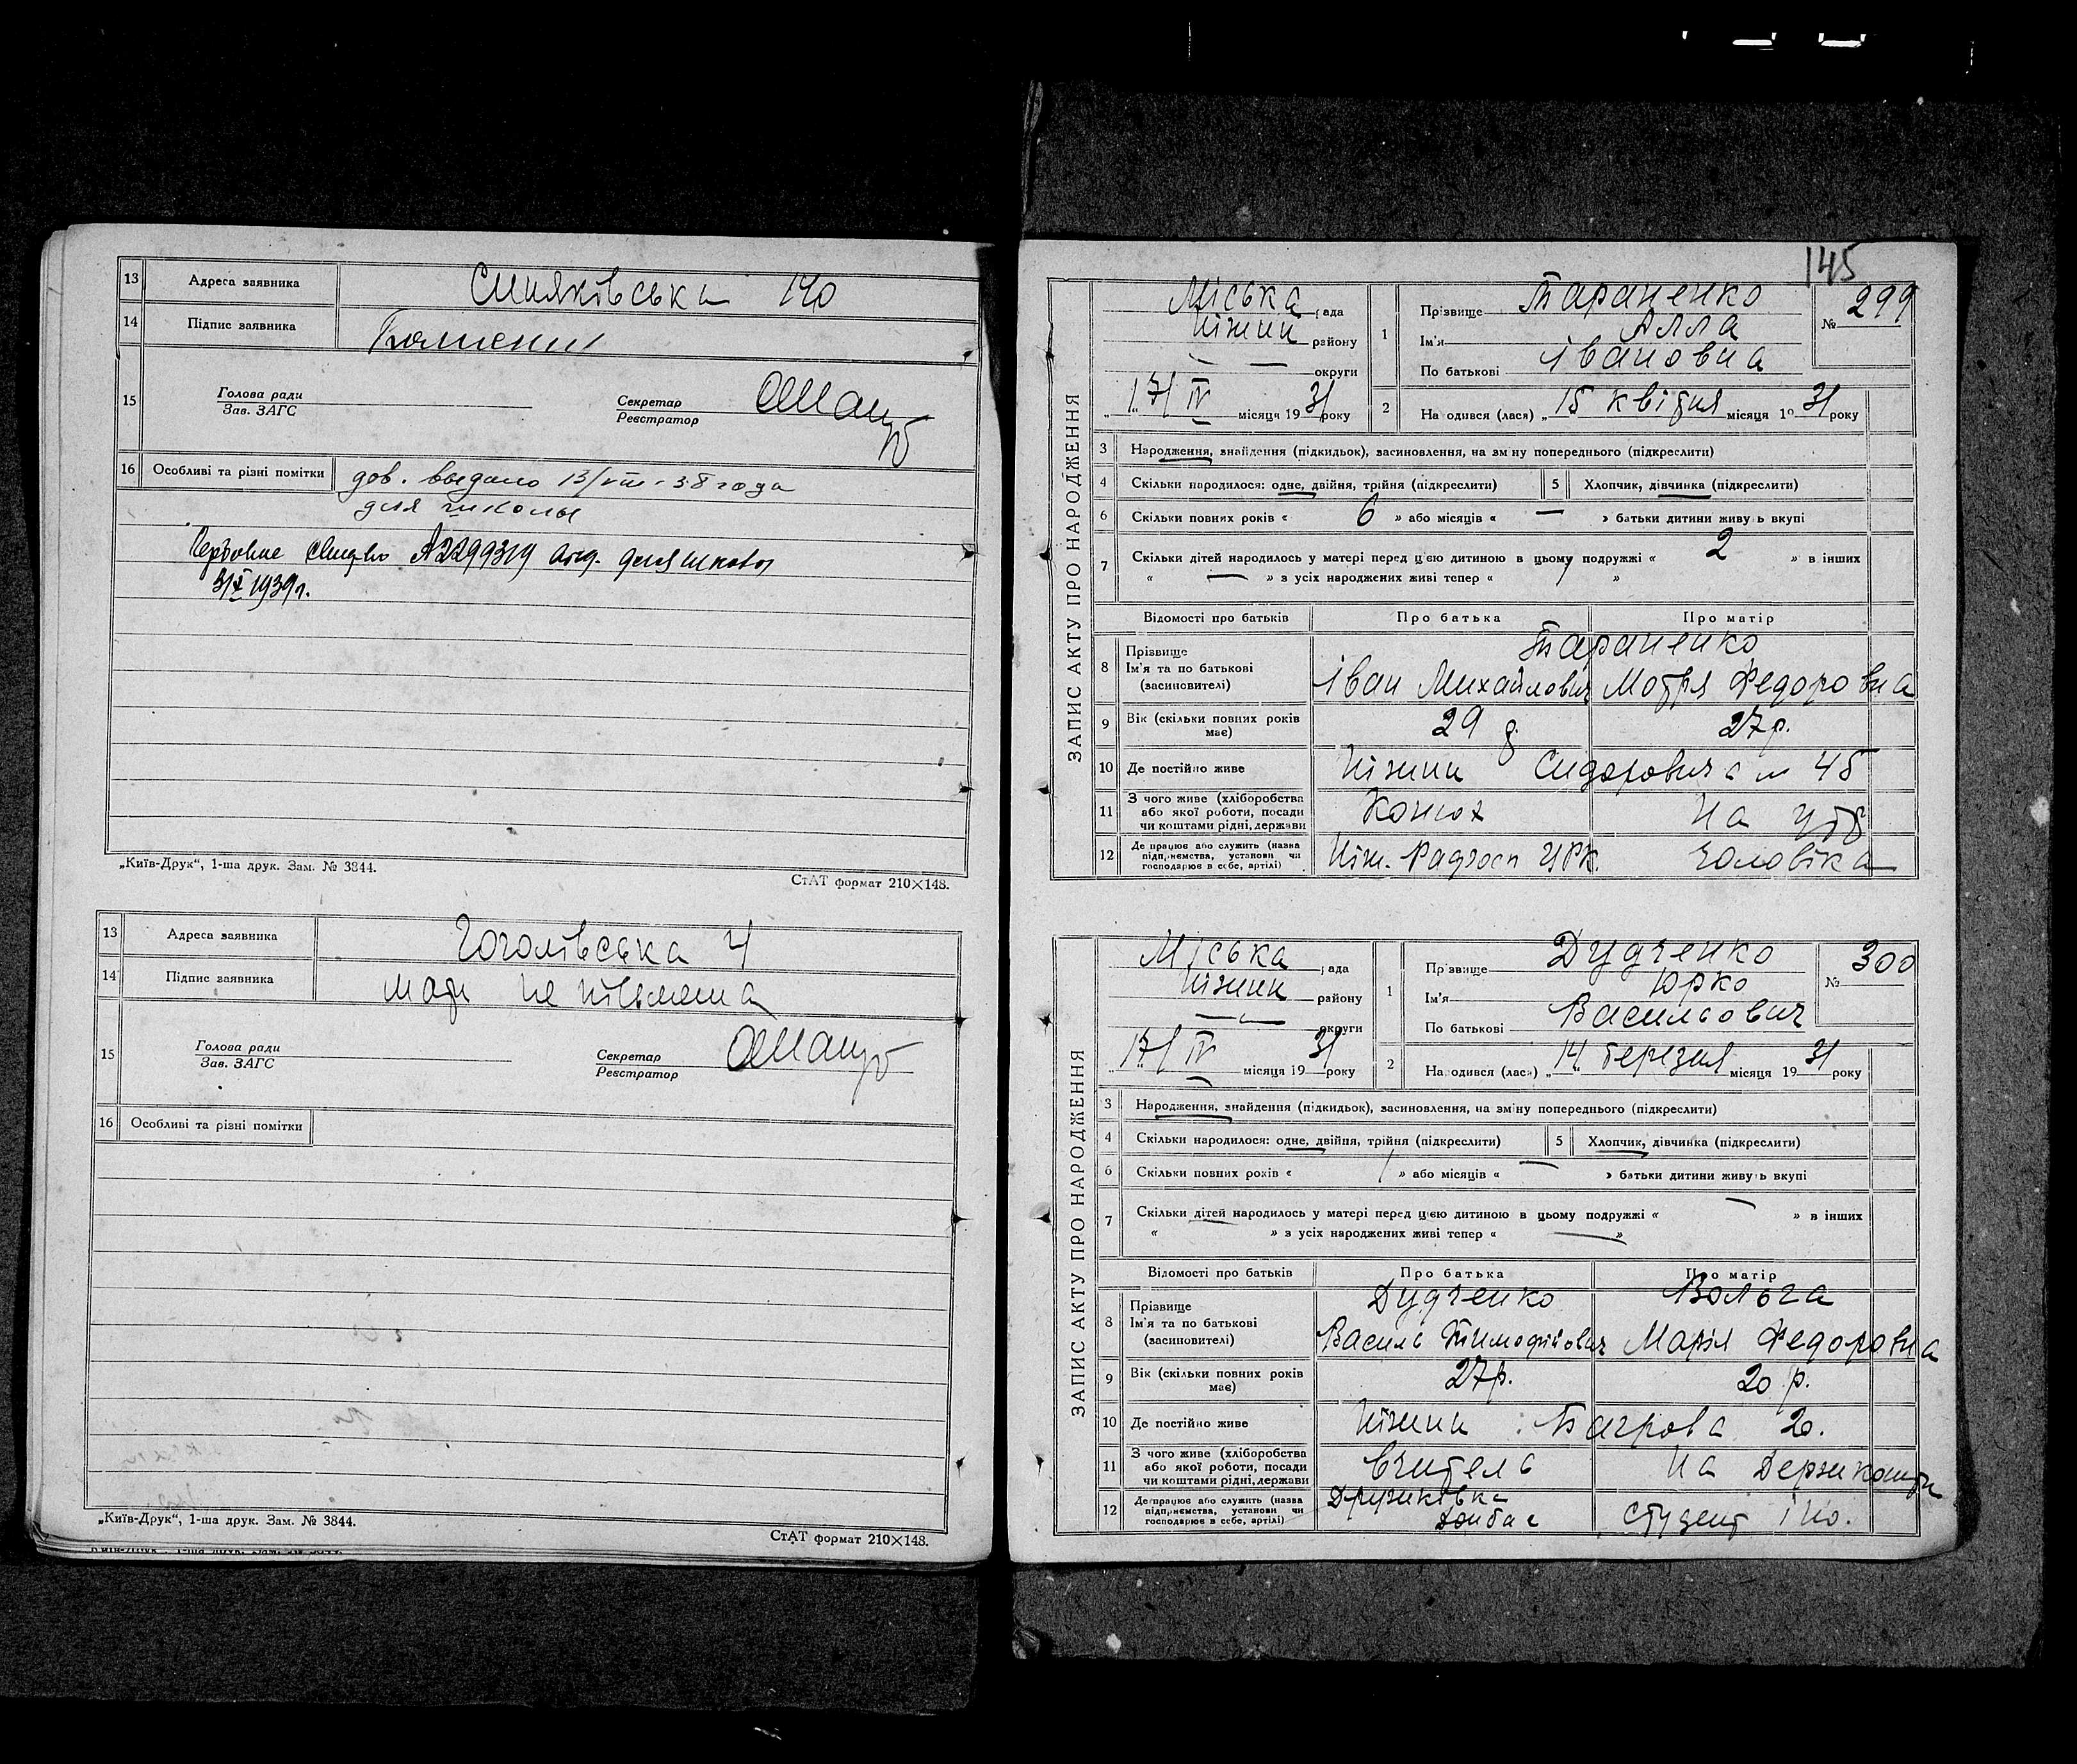 13 Адреса заявника Синяківська 140
14 Підпис заявника
15 Голова ради
Зав. ЗАГС
Секретар
Реєстратор
16 Особливі та різні помітки дов. выдано 13/VIII-38 года
для школы
А2299319 для школы
3/X 1939 г.
„Київ-Друк“, 1-ша друк. Зам. № 3844.
СтАТ формат 210×148.
13 Адреса заявника Гоголівська 4
14 Підпис заявника мати не письмена
15 Голова ради
Зав. ЗАГС
Секретар
Реєстратор
16 Особливі та різні помітки
„Київ-Друк“, 1-ша друк. Зам. № 3844.
СтАТ формат 210×148.
145
ЗАПИС АКТУ ПРО НАРОДЖЕННЯ
Міська рада
Ніжин району
— округи
„17/ IV місяця 1931 року
1 Прізвище Тараненко
Ім'я Алла
По батькові Івановна
№ 299
2 На одився (лася) „15 квітня місяця 1931 року
3 Народження, знайдення (підкидьок), засиновлення, на зміну попереднього (підкреслити)
4 Скільки народилося: одне, двійня, трійня (підкреслити) 5 Хлопчик, дівчинка (підкреслити)
6 Скільки повних років « 6 » або місяців « — » батьки дитини живуть вкупі
7 Скільки дітей народилось у матері перед цією дитиною в цьому подружжі « 2 » в інших
« — » з усіх народжених живі тепер « / »
Відомості про батьків Про батька Про матір
8 Прізвище
Ім'я та по батькові
(засиновителі)
Тараненко
Іван Михайлович Мотря Федоровна
9 Вік (скільки повних років має) 29 р. 27 р.
10 Де постійно живе Ніжин Сидоровича 45
11 З чого живе (хліборобства
або якої роботи, посади
чи коштами рідні, держави
Конюх На утр
12 Де працює або служить (назва
підприємства, установи чи
господарює в себе, артілі)
Ніж. Радгосп ЦРК. чоловіка
ЗАПИС АКТУ ПРО НАРОДЖЕННЯ
Міська рада
Ніжин району
— округи
„17/ IV місяця 1931 року
1 Прізвище Дудченко
Ім'я Юрко
По батькові Васильович
№ 300
2 На одився (лася) „14 березня місяця 1931 року
3 Народження, знайдення (підкидьок), засиновлення, на зміну попереднього (підкреслити)
4 Скільки народилося: одне, двійня, трійня (підкреслити) 5 Хлопчик, дівчинка (підкреслити)
6 Скільки повних років « / » або місяців « — » батьки дитини живуть вкупі
7 Скільки дітей народилось у матері перед цією дитиною в цьому подружжі « — » в інших
« » з усіх народжених живі тепер « — »
Відомості про батьків Про батька Про матір
8 Прізвище
Ім'я та по батькові
(засиновителі)
Дудченко Вольга
Василь Тимофійович Марія Федоровна
9 Вік (скільки повних років має) 27 р. 20 р.
10 Де постійно живе Ніжин Багрова 20.
11 З чого живе (хліборобства
або якої роботи, посади
чи коштами рідні, держави
Вчитель На Держкошти
12 Де працює або служить (назва
підприємства, установи чи
господарює в себе, артілі)
Дружківка
Донбас
студент ІНО.